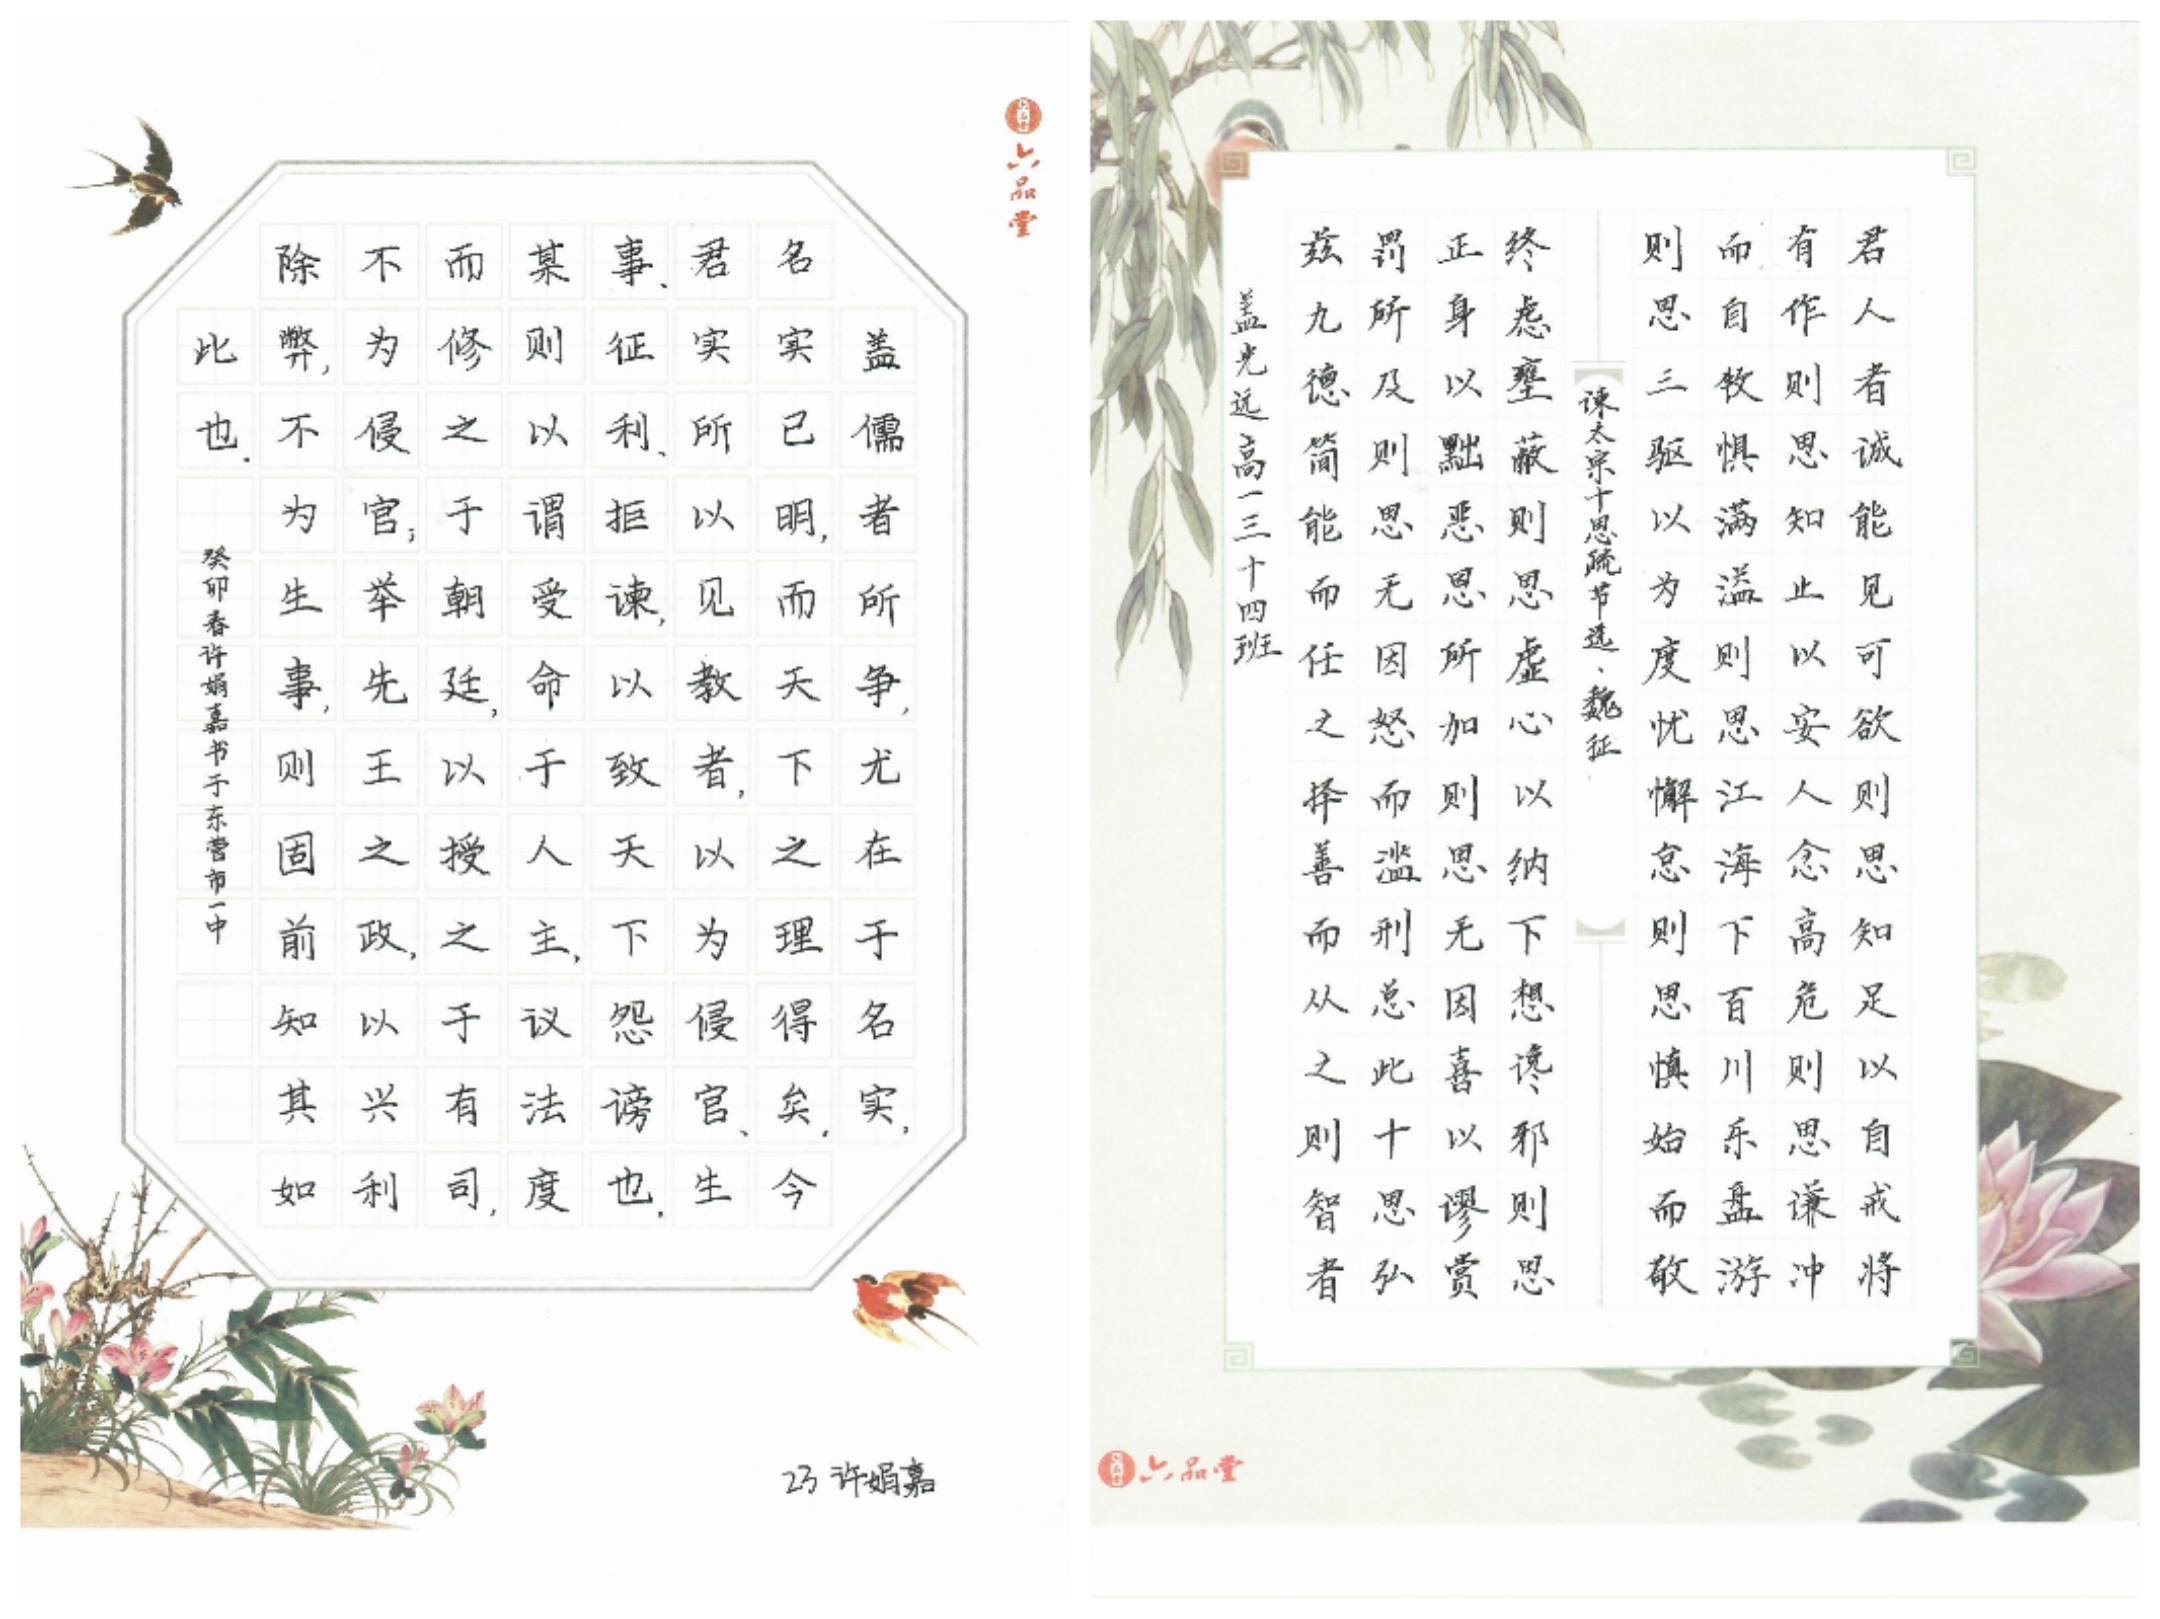 六品堂
盖儒者所争,尤在于名实,
名实已明,而天下之理得矣.今
君实所以见教者,以为侵官、生
事、征利、拒谏,以致天下怨谤也.
某则以谓受命于人主,议法度
而修之于朝廷,以授之于有司,
不为侵官;举先王之政,以兴利
除弊,不为生事,则固前知其如
此也.
癸卯春许娟嘉书于东营市一中
23 许娟嘉
君人者诚能见可欲则思知足以自戒将
有作则思知止以安人念高危则思谦冲
而自牧惧满溢则思江海下百川乐盘游
则思三驱以为度忧懈怠则思慎始而敬
谏太宗十思疏节选、魏征
终虑壅蔽则思虚心以纳下想谗邪则思
正身以黜恶思所加则思无因喜以谬赏
罚所及则思无因怒而滥刑总此十思弘
兹九德简能而任之择善而从之则智者
盖光远高一三十四班
六品堂